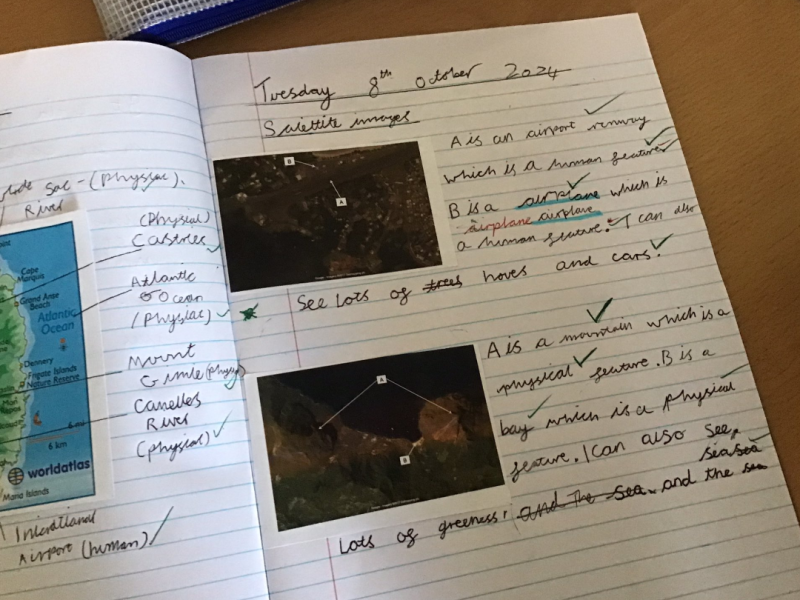 (Physcal).
River
(Physical)
Castries
Atlantic
Ocean
(Physical)
Mount
Gimie (Physical)
Canelles
River
(physical)
Airport (human)
Cape
Marquis
Grand Anse
Beach
Atlantic
Ocean
Dennery
Fregate Islands
Nature Reserve
6 mi
6 km
worldatlas
Maria Islands
Tuesday 8th October 2024
Satellite images
B
A
A is an airport runway
which is a human feature
B is a airplane which is
airplane airplane
a human feature. I can also
See Lots of trees hoves and cars.
A
B
A is a mountain which is a
physical feature. B is a
bay which is a physical
feature. I can also see
sea sea
Lots of greeness, and the sea. and the sea